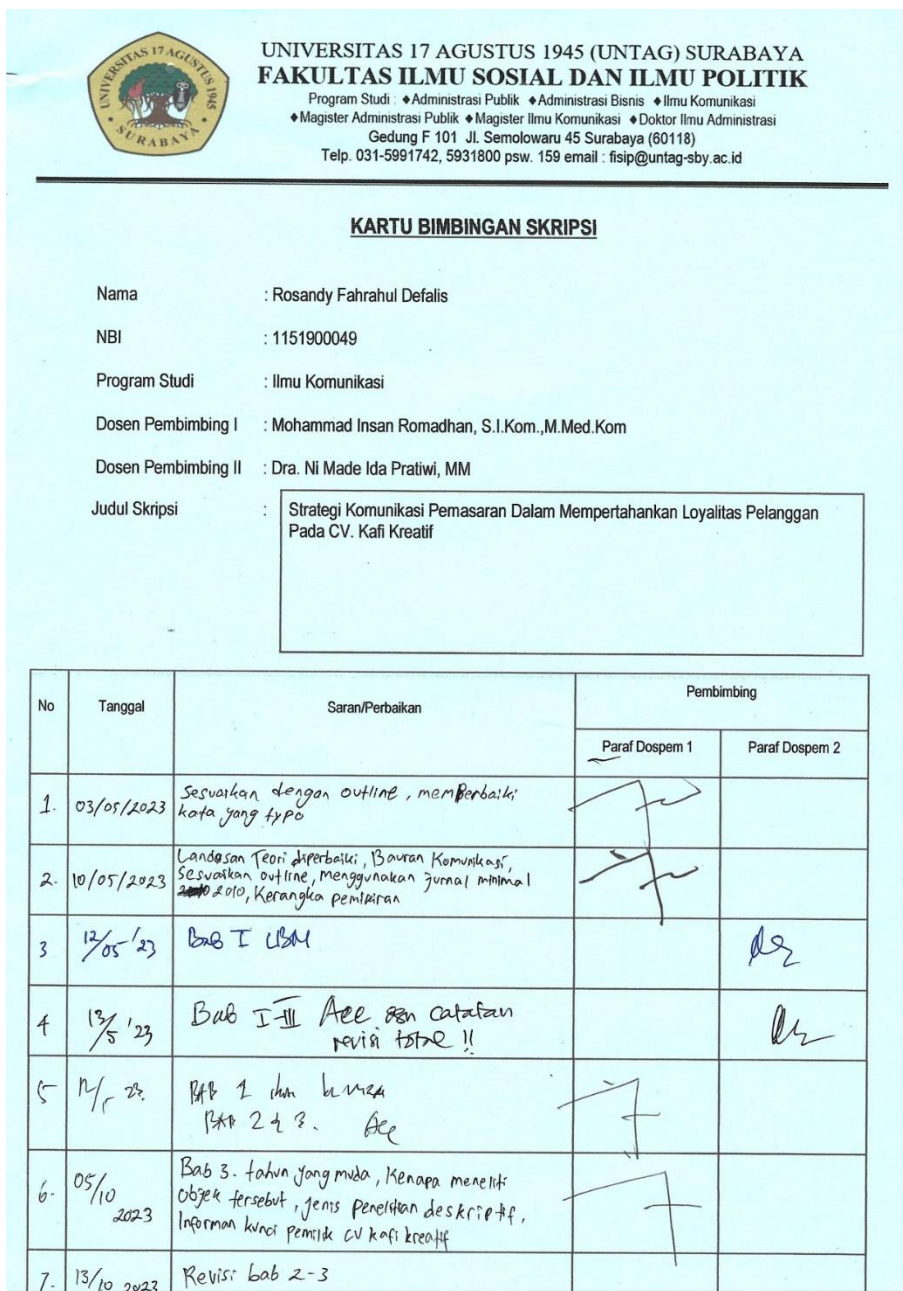 UNIVERSITAS 17 AGUSTUS 1945
SURABAYA
UNIVERSITAS 17 AGUSTUS 1945 (UNTAG) SURABAYA
FAKULTAS ILMU SOSIAL DAN ILMU POLITIK
Program Studi : ◆Administrasi Publik ◆Administrasi Bisnis ◆Ilmu Komunikasi
◆Magister Administrasi Publik ◆Magister Ilmu Komunikasi ◆Doktor Ilmu Administrasi
Gedung F 101 Jl. Semolowaru 45 Surabaya (60118)
Telp. 031-5991742, 5931800 psw. 159 email : fisip@untag-sby.ac.id
KARTU BIMBINGAN SKRIPSI
Nama : Rosandy Fahrahul Defalis
NBI : 1151900049
Program Studi : Ilmu Komunikasi
Dosen Pembimbing I : Mohammad Insan Romadhan, S.I.Kom.,M.Med.Kom
Dosen Pembimbing II : Dra. Ni Made Ida Pratiwi, MM
Judul Skripsi : Strategi Komunikasi Pemasaran Dalam Mempertahankan Loyalitas Pelanggan
Pada CV. Kafi Kreatif
No Tanggal Saran/Perbaikan Pembimbing
Paraf Dospem 1 Paraf Dospem 2
1. 03/05/2023 Sesuaikan dengan outline, memperbaiki
kata yang typo
2. 10/05/2023 Landasan Teori diperbaiki, Bauran Komunikasi,
Sesuaikan outline, menggunakan jurnal minimal
2010, Kerangka pemikiran
3 12/05 '23 Bab I LBM
4 13/5 '23 Bab I-III Acc dgn catatan
revisi total !!
5 23. BAB 1
BAB 2 & 3. Acc
6. 05/10 2023 Bab 3. tahun yang muda, Kenapa meneliti
objek tersebut, jenis penelitian deskriptif,
Informan kunci pemilik CV kafi kreatif
7. 13/10 2023 Revisi bab 2-3